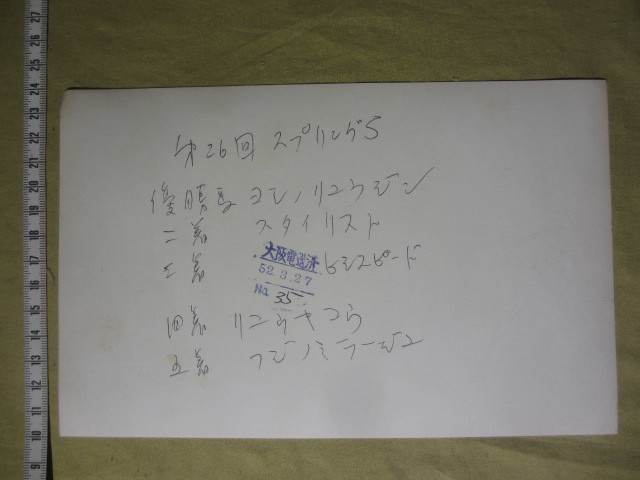 第26回 スプリングS
優勝馬 ヨシノリュウジン
二着 スタイリスト
三着 ヒシスピード
大阪電送済
52.3.27
No. 35
四着
五着 フジノミラージュ
27
26
25
24
23
22
21
20
19
18
17
16
15
14
13
12
11
10
9